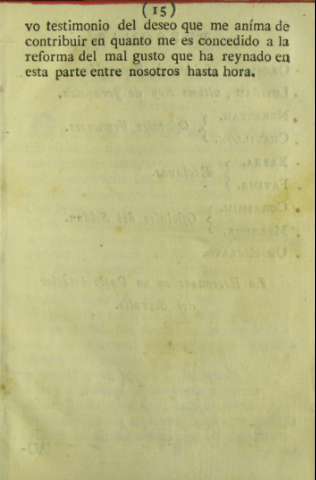 (15)
vo testimonio del deseo que me aníma de
contribuir en quanto me es concedido a la
reforma del mal gusto que ha reynado en
esta parte entre nosotros hasta hora.